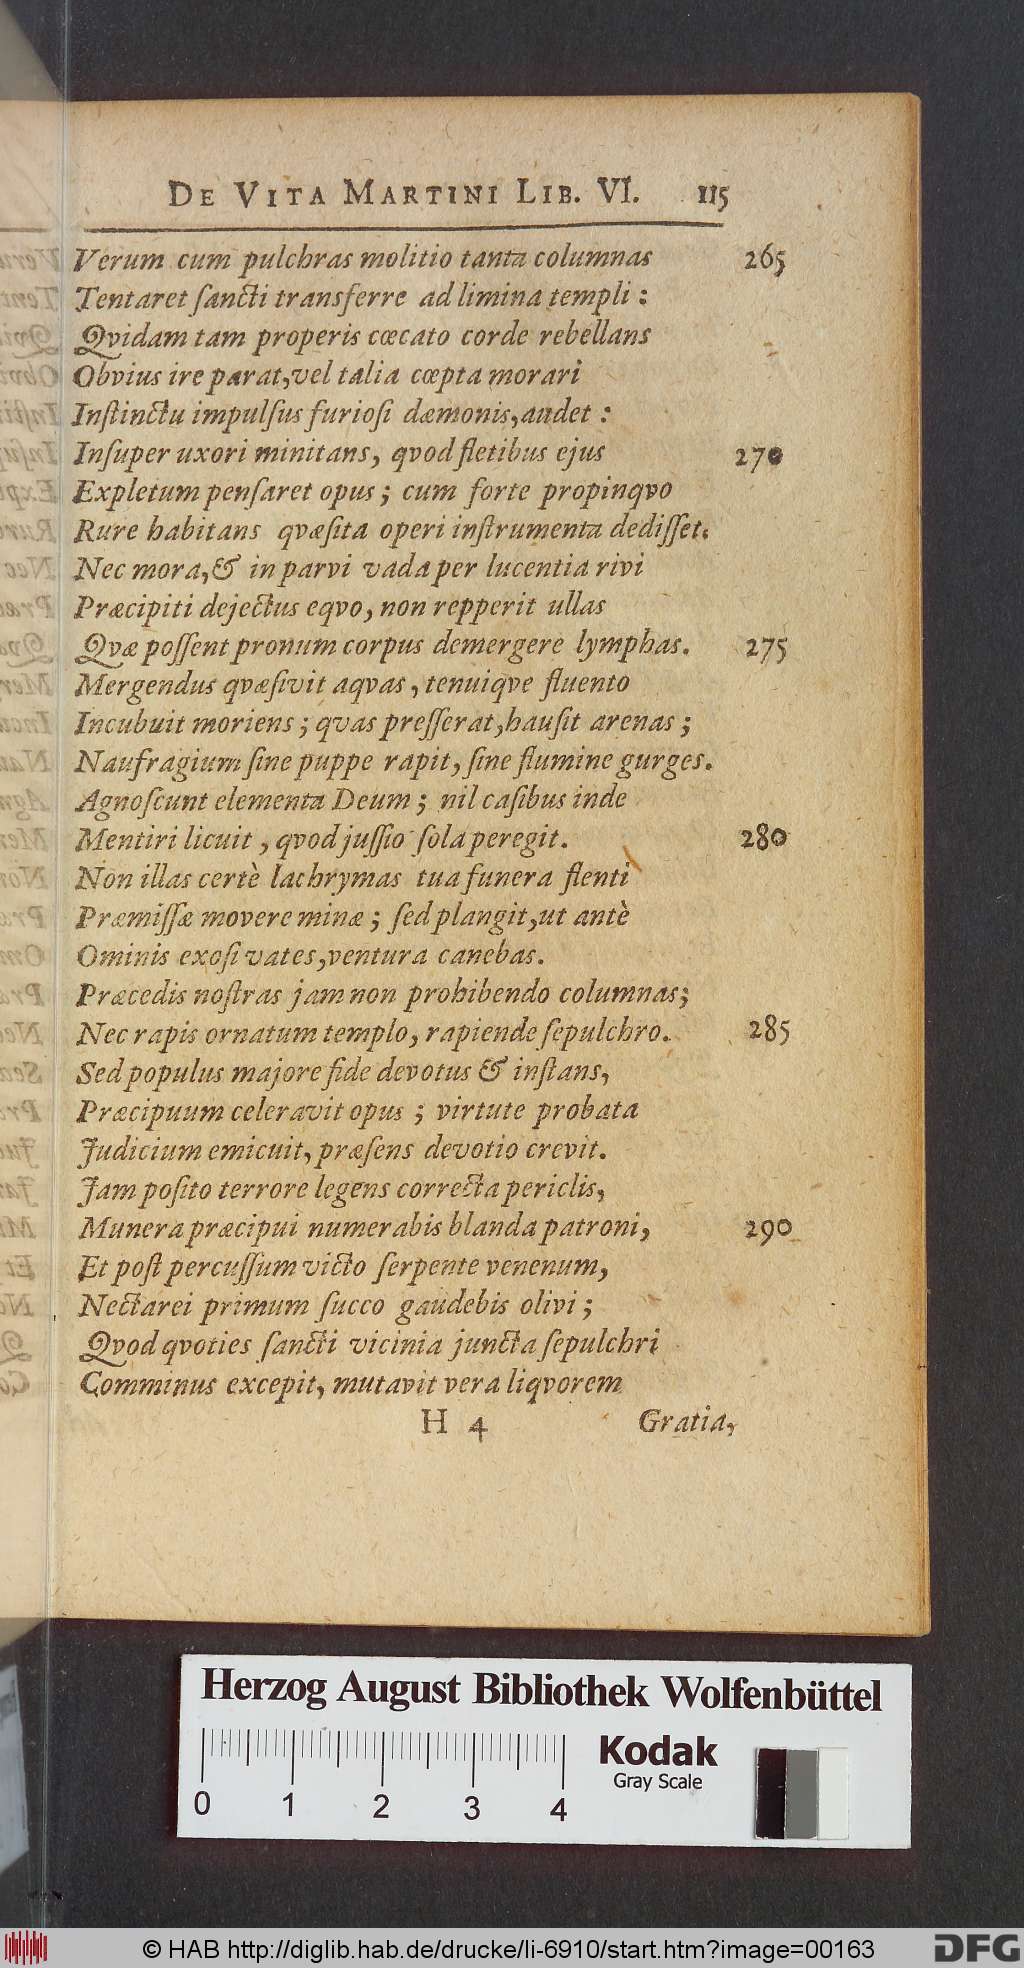 DE VITA MARTINI LIB. VI. 115
Verum cum pulchras molitio tanta columnas 265
Tentaret ſancti transferre ad limina templi :
Qvidam tam properis cœcato corde rebellans
Obvius ire parat, vel talia cœpta morari
Inſtinctu impulſus furioſi dæmonis, audet :
Inſuper uxori minitans, qvod fletibus ejus 270
Expletum penſaret opus ; cum forte propinqvo
Rure habitans qvæſita operi inſtrumenta dediſſet.
Nec mora, & in parvi vada per lucentia rivi
Præcipiti dejectus eqvo, non repperit ullas
Qvæ poſſent pronum corpus demergere lymphas. 275
Mergendus qvæſivit aqvas, tenuiqve fluento
Incubuit moriens ; qvas preſſerat, hauſit arenas ;
Naufragium ſine puppe rapit, ſine flumine gurges.
Agnoſcunt elementa Deum ; nil caſibus inde
Mentiri licuit, qvod juſſio ſola peregit. 280
Non illas certè lachrymas tua funera flenti
Præmiſſæ movere minæ ; ſed plangit, ut antè
Ominis exoſi vates, ventura canebas.
Præcedis noſtras jam non prohibendo columnas;
Nec rapis ornatum templo, rapiende ſepulchro. 285
Sed populus majore fide devotus & inſtans,
Præcipuum celeravit opus ; virtute probata
Judicium emicuit, præſens devotio crevit.
Jam poſito terrore legens correcta periclis,
Munera præcipui numerabis blanda patroni, 290
Et poſt percuſſum victo ſerpente venenum,
Nectarei primum ſucco gaudebis olivi ;
Qvod qvoties ſancti vicinia juncta ſepulchri
Comminus excepit, mutavit vera liqvorem
H 4 Gratia,
Herzog August Bibliothek Wolfenbüttel
Kodak
Gray Scale
0 1 2 3 4
© HAB http://diglib.hab.de/drucke/li-6910/start.htm?image=00163
DFG